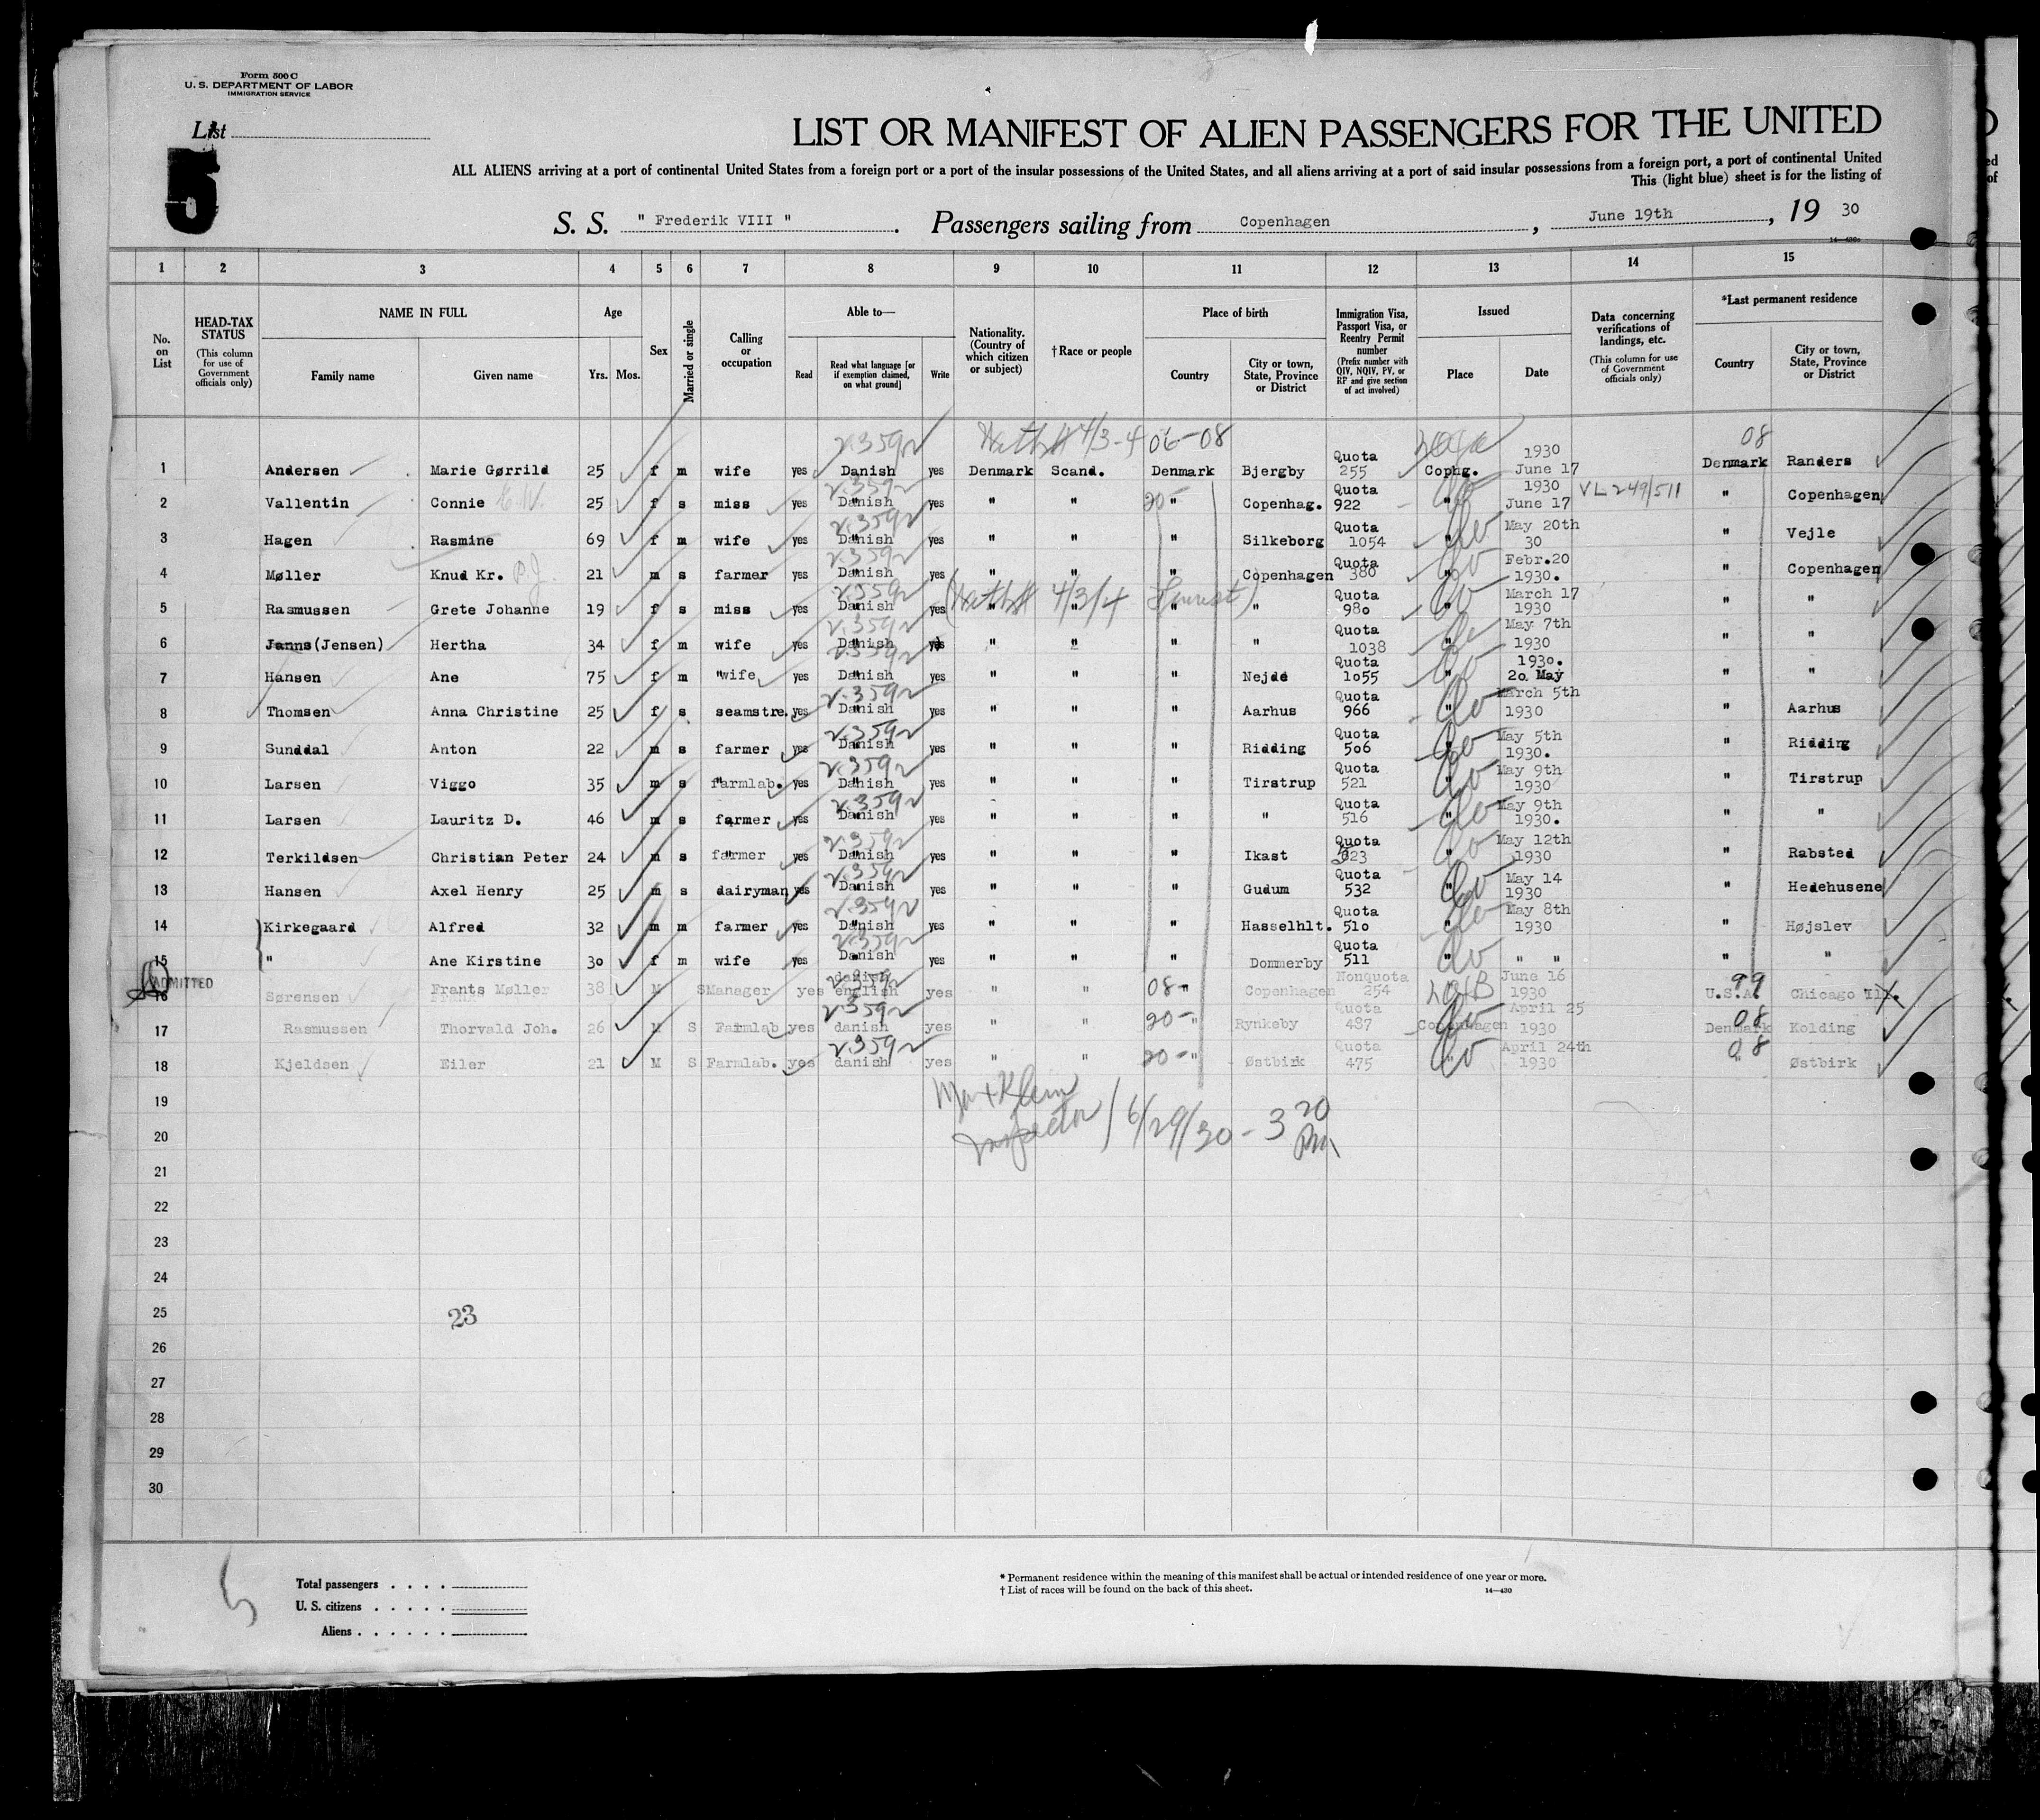 Form 500 C
U. S. DEPARTMENT OF LABOR
IMMIGRATION SERVICE
List
5
LIST OR MANIFEST OF ALIEN PASSENGERS FOR THE UNITED
ALL ALIENS arriving at a port of continental United States from a foreign port or a port of the insular possessions of the United States, and all aliens arriving at a port of said insular possessions from a foreign port, a port of continental United
This (light blue) sheet is for the listing of
S. S. " Frederik VIII " . Passengers sailing from Copenhagen , June 19th , 19 30
1 2 3 4 5 6 7 8 9 10 11 12 13 14 15
No. on List
HEAD-TAX STATUS (This column for use of Government officials only)
NAME IN FULL
Family name Given name
Age
Yrs. Mos.
Sex
Married or single
Calling or occupation
Able to—
Read
Read what language [or if exemption claimed, on what ground]
Write
Nationality. (Country of which citizen or subject)
†Race or people
Place of birth
Country
City or town, State, Province or District
Immigration Visa, Passport Visa, or Reentry Permit number (Prefix number with QIV, NQIV, PV, or RP and give section of act involved)
Issued
Place Date
Data concerning verifications of landings, etc. (This column for use of Government officials only)
*Last permanent residence
Country
City or town, State, Province or District
4/3-4 06-08 08
1 Andersen Marie Gørrild 25 f m wife yes Danish yes Denmark Scand. Denmark Bjergby Quota 255 Cophg. 1930 June 17 Denmark Randers
2 Vallentin Connie 25 f s miss yes Danish yes " " 20- " Copenhag. Quota 922 " 1930 June 17 VL 249/511 " Copenhagen
3 Hagen Rasmine 69 f m wife yes Danish yes " " " Silkeborg Quota 1054 " May 20th 30 " Vejle
4 Møller Knud Kr. 21 m s farmer yes Danish yes " " " Copenhagen Quota 380 " Febr.20 1930. " Copenhagen
5 Rasmussen Grete Johanne 19 f s miss yes Danish yes " 4/3/4 " Quota 980 " March 17 1930 " "
6 Janns (Jensen) Hertha 34 f m wife yes Danish yes " " " " Quota 1038 " May 7th 1930 " "
7 Hansen Ane 75 f m "wife yes Danish yes " " " Nejde Quota 1055 " 1930. 20 May " "
8 Thomsen Anna Christine 25 f s seamstre. yes Danish yes " " " Aarhus Quota 966 " March 5th 1930 " Aarhus
9 Sunddal Anton 22 m s farmer yes Danish yes " " " Ridding Quota 506 " May 5th 1930. " Ridding
10 Larsen Viggo 35 m s farmlab. yes Danish yes " " " Tirstrup Quota 521 " May 9th 1930 " Tirstrup
11 Larsen Lauritz D. 46 m s farmer yes Danish yes " " " " Quota 516 " May 9th 1930. " "
12 Terkildsen Christian Peter 24 m s farmer yes Danish yes " " " Ikast Quota 523 " May 12th 1930 " Rabsted
13 Hansen Axel Henry 25 m s dairyman yes Danish yes " " " Gudum Quota 532 " May 14 1930 " Hedehusene
14 Kirkegaard Alfred 32 m m farmer yes Danish yes " " " Hasselhlt. Quota 510 " May 8th 1930 " Højslev
15 " Ane Kirstine 30 f m wife yes Danish yes " " " Dommerby Quota 511 " " " "
ADMITTED
16 Sørensen Frants Møller 38 M S Manager yes danish english yes " " 08- " Copenhagen Nonquota 254 June 16 1930 99 U.S.A. Chicago Ill.
17 Rasmussen Thorvald Joh. 26 M S Farmlab yes danish yes " " 20- " Rynkeby Quota 487 Copenhagen April 25 1930 08 Denmark Kolding
18 Kjeldsen Eiler 21 M S Farmlab. yes danish yes " " 20- " Østbirk Quota 475 " April 24th 1930 08 " Østbirk
19 Max Klein
20 Inspector / 6/29/30 - 3 20 PM
21
22
23
24
25 23
26
27
28
29
30
Total passengers . . . .
U. S. citizens . . . . .
Aliens . . . . . .
* Permanent residence within the meaning of this manifest shall be actual or intended residence of one year or more.
† List of races will be found on the back of this sheet. 14—430